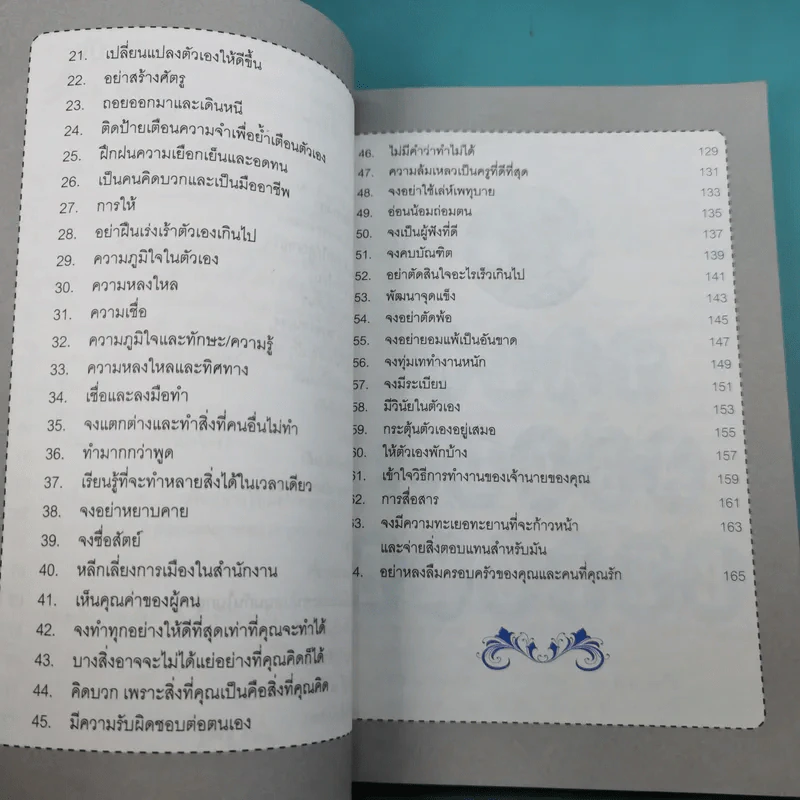 21. เปลี่ยนแปลงตัวเองให้ดีขึ้น
22. อย่าสร้างศัตรู
23. ถอยออกมาและเดินหนี
24. ติดป้ายเตือนความจำเพื่อย้ำเตือนตัวเอง
25. ฝึกฝนความเยือกเย็นและอดทน
26. เป็นคนคิดบวกและเป็นมืออาชีพ
27. การให้
28. อย่าฝืนเร่งเร้าตัวเองเกินไป
29. ความภูมิใจในตัวเอง
30. ความหลงใหล
31. ความเชื่อ
32. ความภูมิใจและทักษะ/ความรู้
33. ความหลงใหลและทิศทาง
34. เชื่อและลงมือทำ
35. จงแตกต่างและทำสิ่งที่คนอื่นไม่ทำ
36. ทำมากกว่าพูด
37. เรียนรู้ที่จะทำหลายสิ่งได้ในเวลาเดียว
38. จงอย่าหยาบคาย
39. จงซื่อสัตย์
40. หลีกเลี่ยงการเมืองในสำนักงาน
41. เห็นคุณค่าของผู้คน
42. จงทำทุกอย่างให้ดีที่สุดเท่าที่คุณจะทำได้
43. บางสิ่งอาจจะไม่ได้แย่อย่างที่คุณคิดก็ได้
44. คิดบวก เพราะสิ่งที่คุณเป็นคือสิ่งที่คุณคิด
45. มีความรับผิดชอบต่อตนเอง
46. ไม่มีคำว่าทำไม่ได้ 129
47. ความล้มเหลวเป็นครูที่ดีที่สุด 131
48. จงอย่าใช้เล่ห์เพทุบาย 133
49. อ่อนน้อมถ่อมตน 135
50. จงเป็นผู้ฟังที่ดี 137
51. จงคบบัณฑิต 139
52. อย่าตัดสินใจอะไรเร็วเกินไป 141
53. พัฒนาจุดแข็ง 143
54. จงอย่าตัดพ้อ 145
55. จงอย่ายอมแพ้เป็นอันขาด 147
56. จงทุ่มเททำงานหนัก 149
57. จงมีระเบียบ 151
58. มีวินัยในตัวเอง 153
59. กระตุ้นตัวเองอยู่เสมอ 155
60. ให้ตัวเองพักบ้าง 157
61. เข้าใจวิธีการทำงานของเจ้านายของคุณ 159
62. การสื่อสาร 161
63. จงมีความทะเยอทะยานที่จะก้าวหน้า 163
และจ่ายสิ่งตอบแทนสำหรับมัน
4. อย่าหลงลืมครอบครัวของคุณและคนที่คุณรัก 165